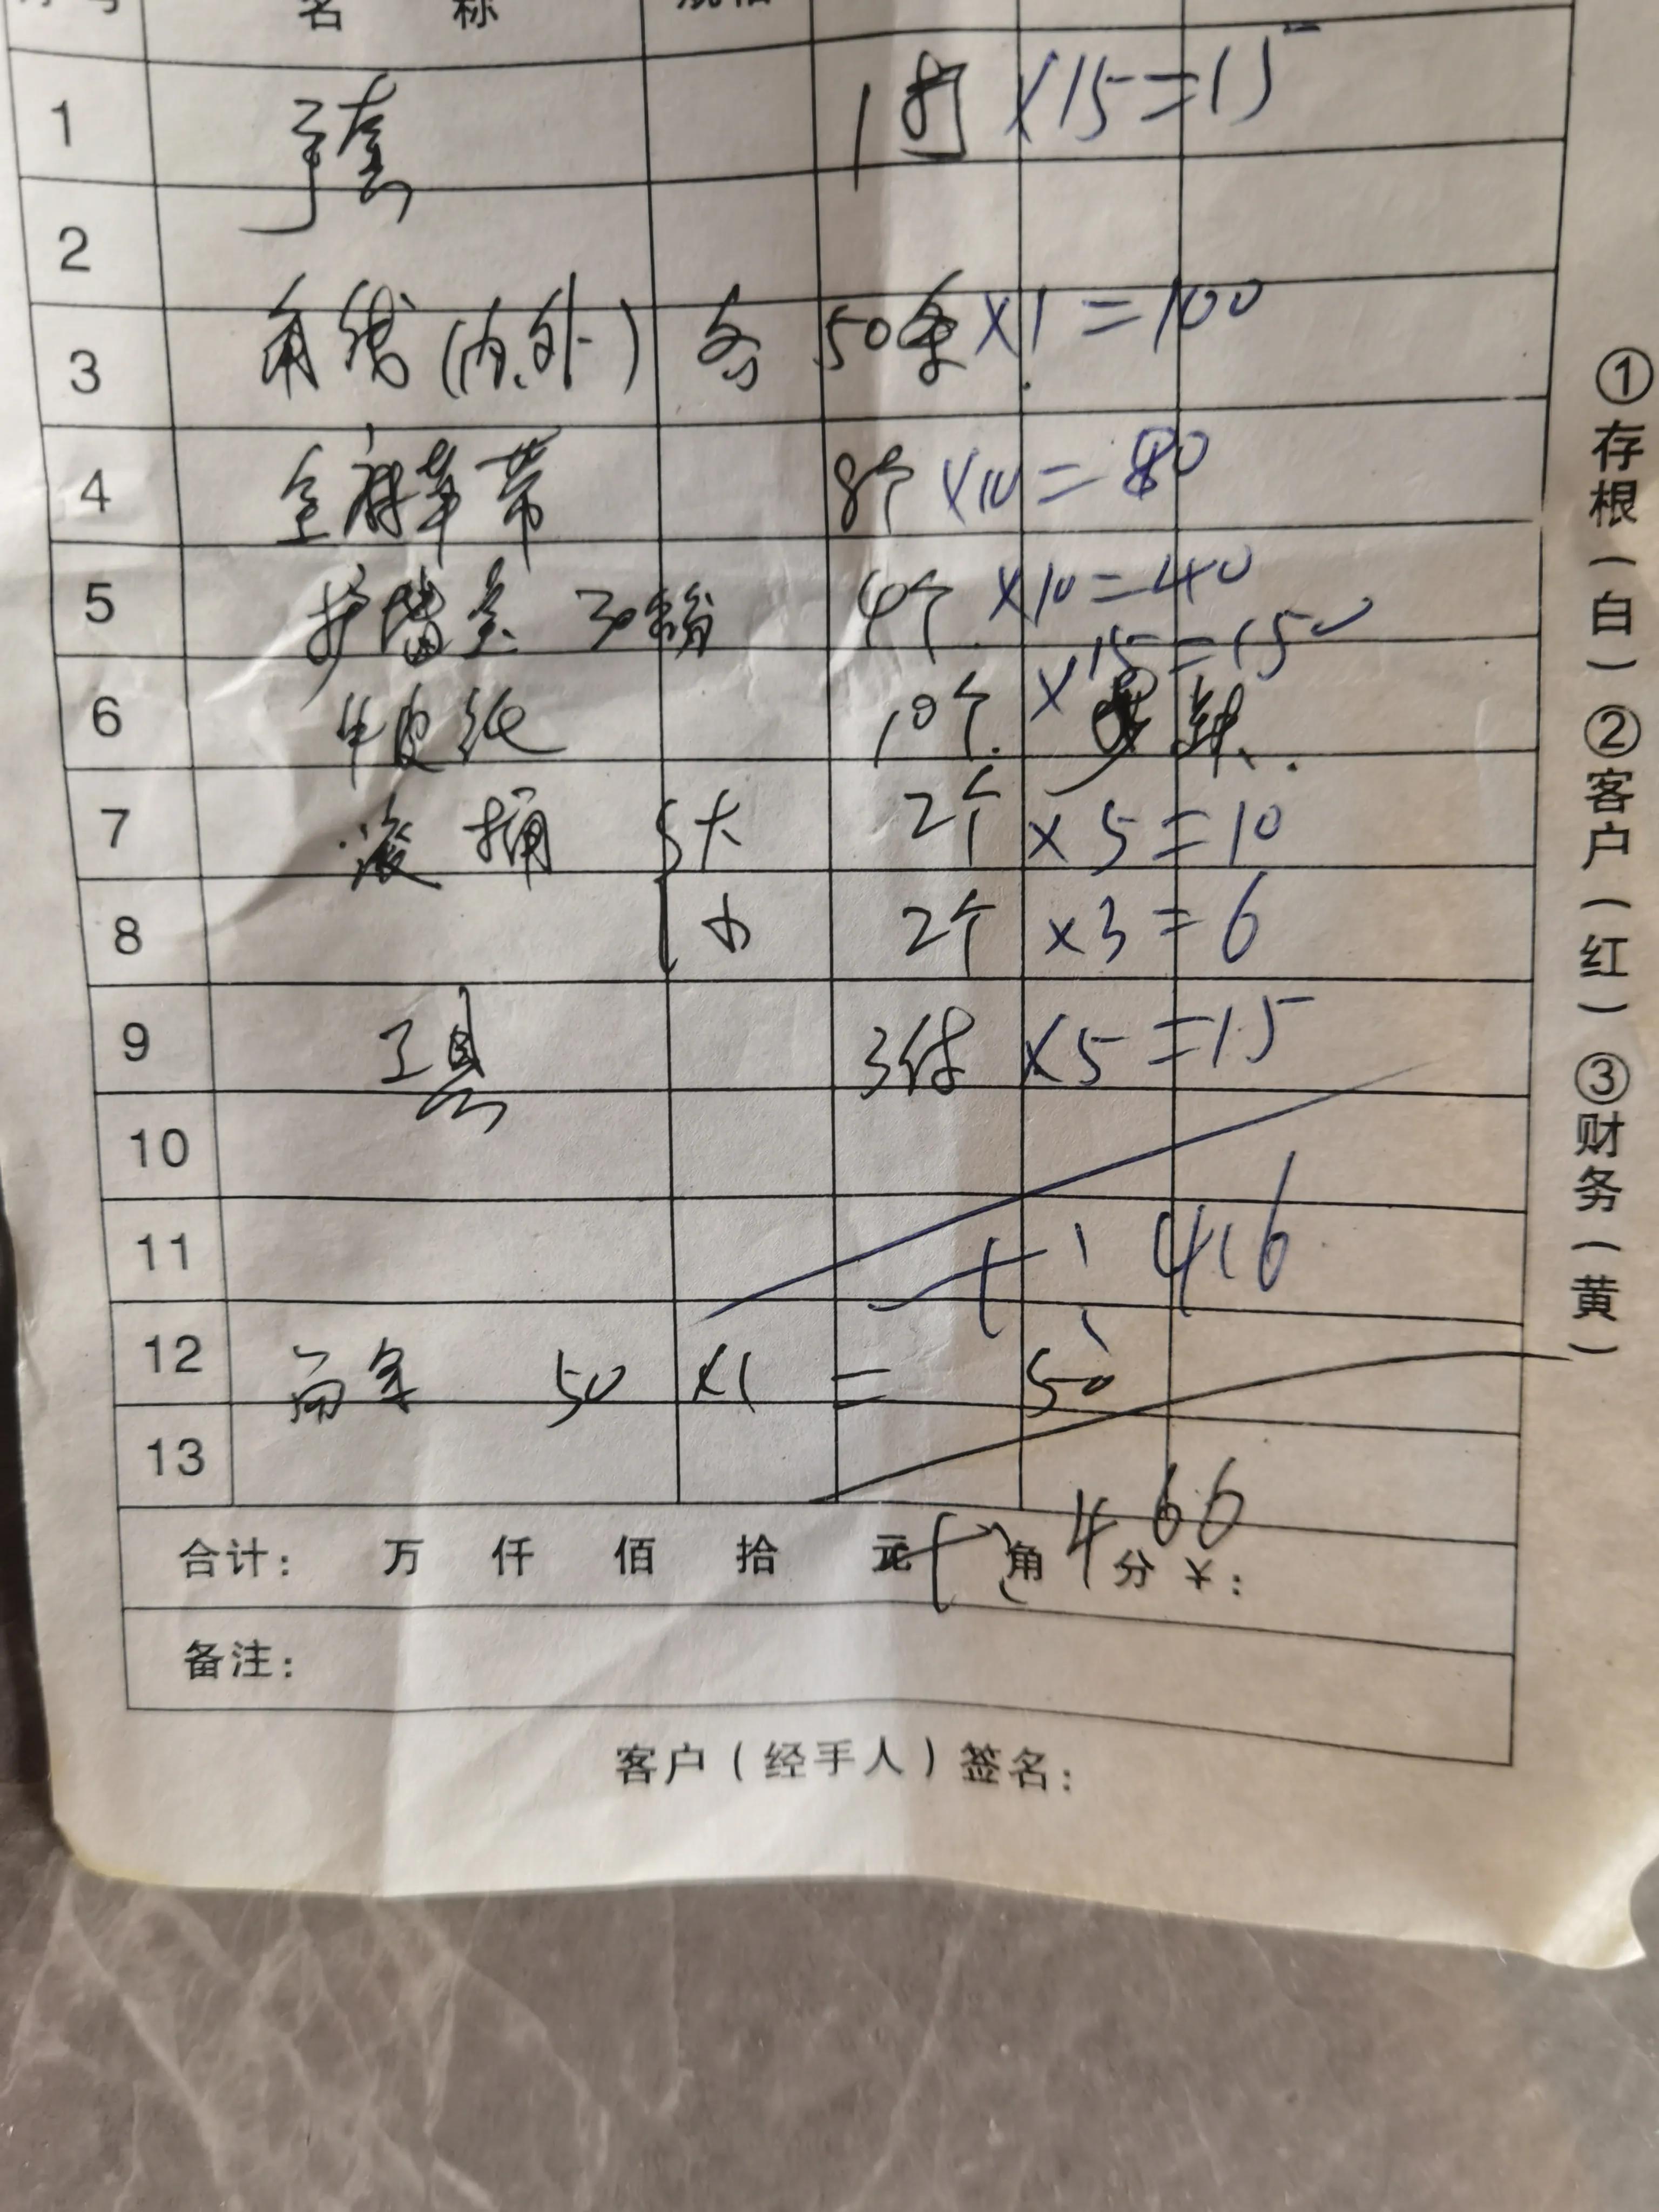 名 称
1 手套 1打 ×15=15
2
3 角线(内.外) 各 50条 ×1=100
4 8个 ×10=80
5 护墙 4个 ×10=40
6 牛皮纸 10个. ×15=150
7 滚桶 大 2个 ×5=10
8 小 2个 ×3=6
9 工具 3件 ×5=15
10
11 416
12 50 ×1 = 50
13
466
合计: 万 仟 佰 拾 元 角 分 ¥:
备注:
客户(经手人)签名:
①存根(白)②客户(红)③财务(黄)